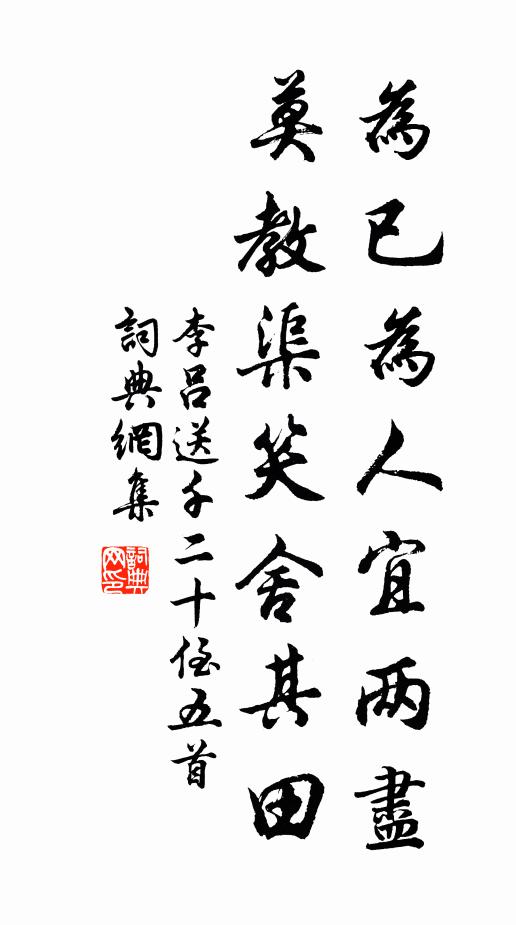 為已為人宜兩盡
莫教渠笑舍其田
李呂送千二十侄五首
詞典網集
詞典网印